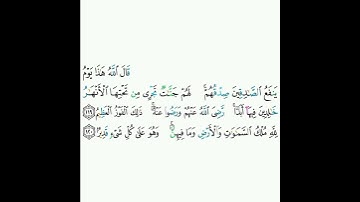 قَالَ ٱللَّهُ هَـٰذَا يَوْمُ
يَنفَعُ ٱلصَّـٰدِقِينَ صِدْقُهُمْ ۚ لَهُمْ جَنَّـٰتٌ تَجْرِى مِن تَحْتِهَا ٱلْأَنْهَـٰرُ
خَـٰلِدِينَ فِيهَآ أَبَدًا ۚ رَّضِىَ ٱللَّهُ عَنْهُمْ وَرَضُوا۟ عَنْهُ ۚ ذَٰلِكَ ٱلْفَوْزُ ٱلْعَظِيمُ ١١٩
لِلَّهِ مُلْكُ ٱلسَّمَـٰوَٰتِ وَٱلْأَرْضِ وَمَا فِيهِنَّ ۚ وَهُوَ عَلَىٰ كُلِّ شَىْءٍ قَدِيرٌۢ ١٢٠